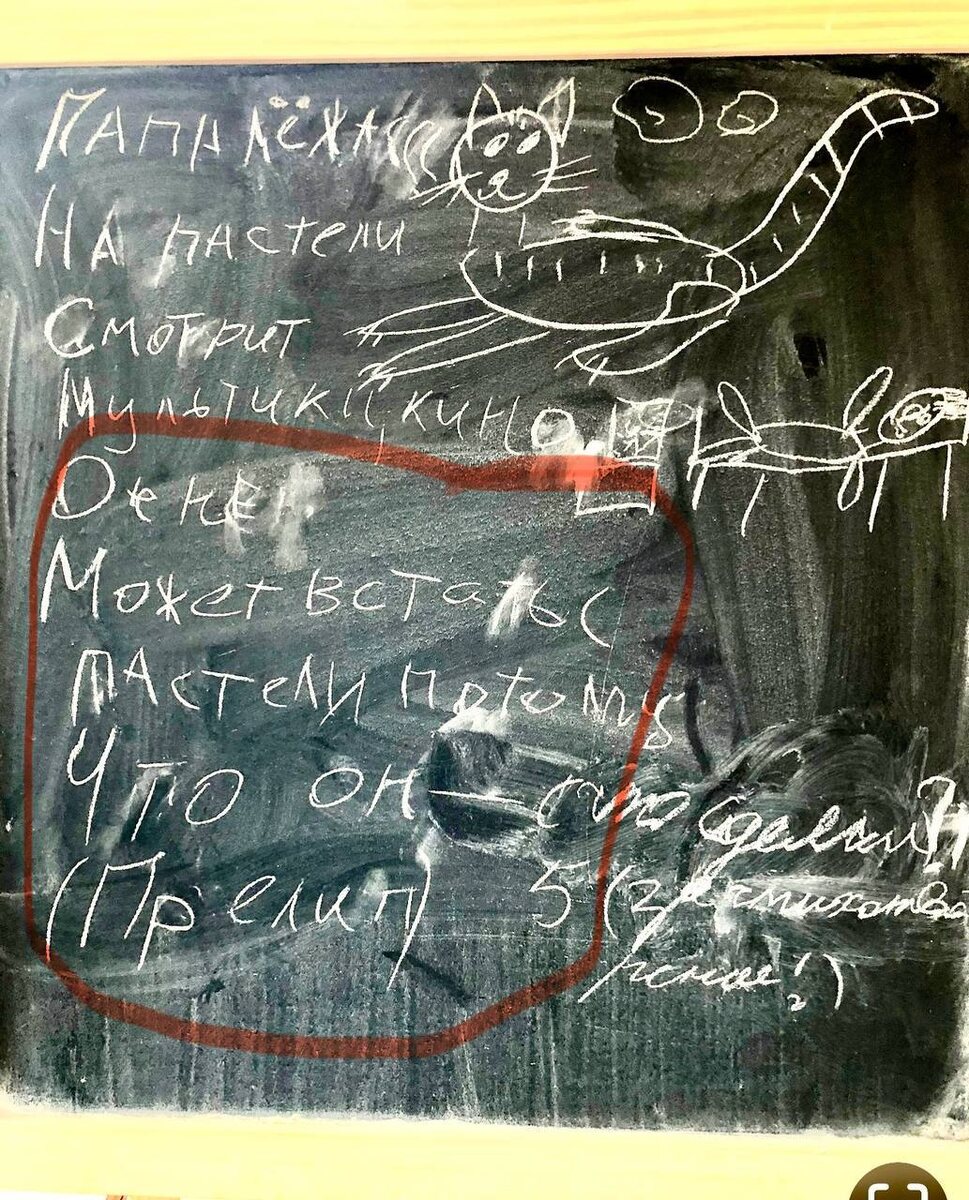 Папа лёжа
На пастели
Смотрит
Мультики, кино
Он не
Может встать с
пастели потому
Что он
(Прелип)
сыр сделали
5 (